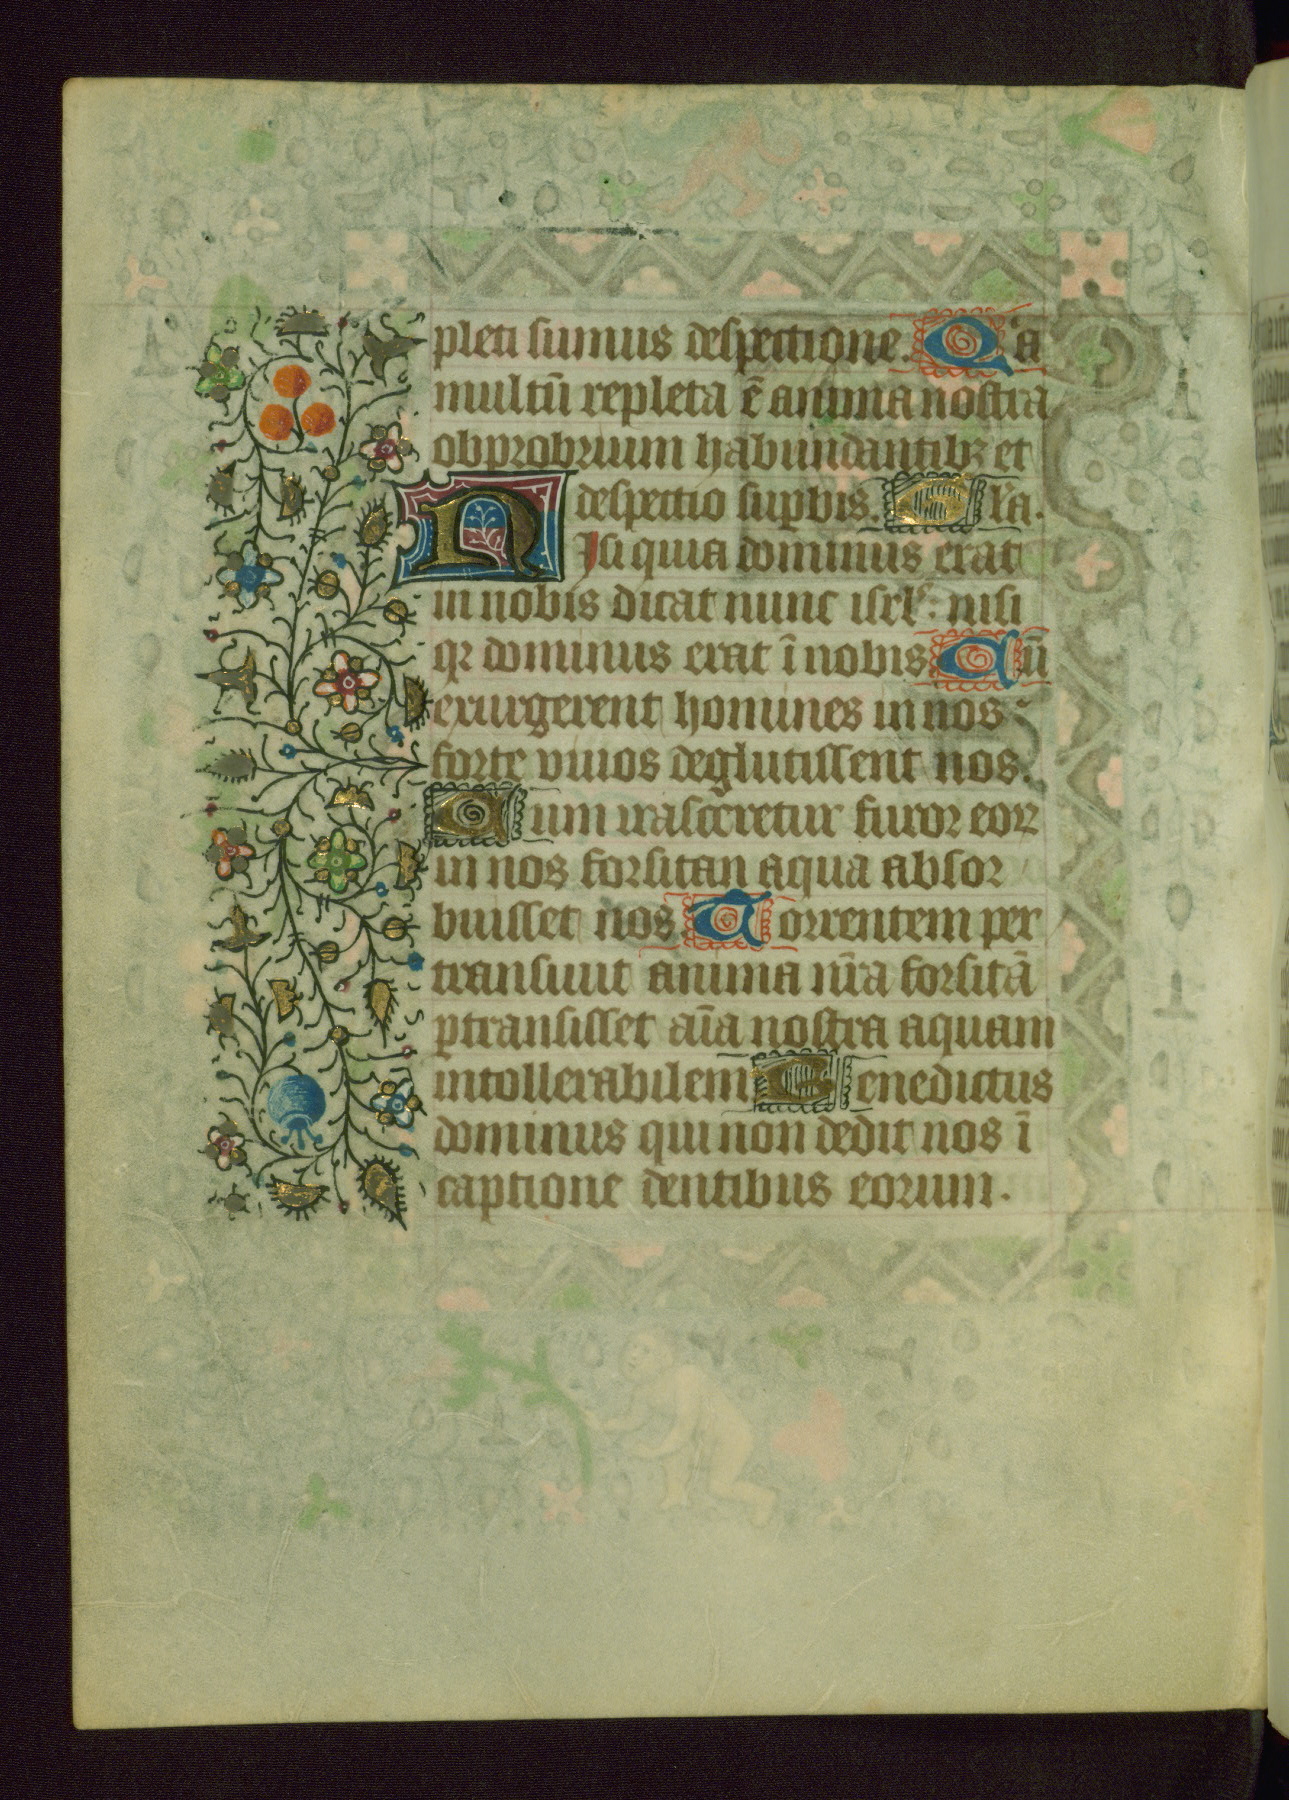 pleti sumus despectione. Qͥa
multū repleta ē anima nostra
obprobrium habundantibꝫ et
despectio supbis. Gľa.
Nisi quia dominus erat
in nobis dicat nunc isrľ: nisi
qꝛ dominus erat ī nobis Cū
exurgerent homines in nos
forte viuos deglutissent nos.
Cum irasceretur furor eoꝝ
in nos forsitan aqua absor
buisset nos. Torrentem per
transiuit anima nr̄a forsitā
ꝑtransisset aīa nostra aquam
intollerabilem Benedictus
dominus qui non dedit nos ī
captione dentibus eorum.